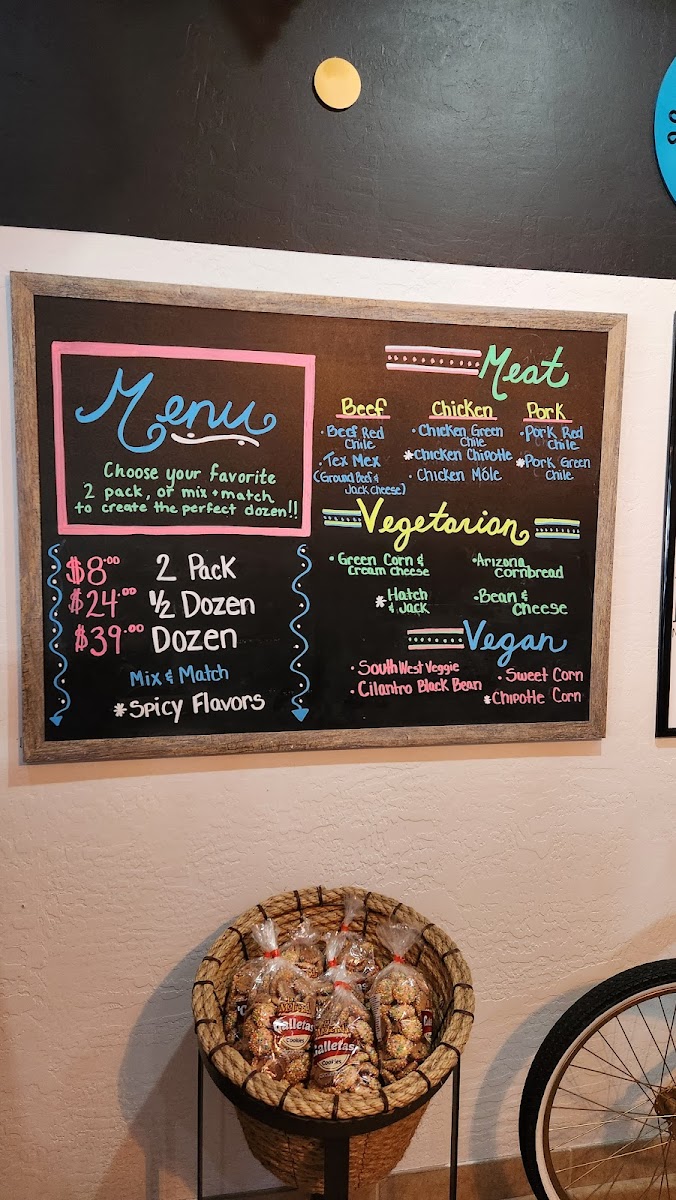 Menu
Choose your favorite
2 pack, or mix + match
to create the perfect dozen!!
$8.00 2 Pack
$24.00 1/2 Dozen
$39.00 Dozen
Mix & Match
*Spicy Flavors
Meat
Beef
• Beef Red
Chile
• Tex Mex
(Ground Beef &
Jack Cheese)
Chicken
• Chicken Green
Chile
*Chicken Chipotle
• Chicken Móle
Pork
• Pork Red
Chile
*Pork Green
Chile
Vegetarian
• Green Corn &
Cream Cheese
* Hatch
& Jack
• Arizona
Cornbread
• Bean &
Cheese
Vegan
• SouthWest Veggie
• Cilantro Black Bean
• Sweet Corn
*Chipotle Corn
Galletas
Cookies
Galletas
Cookies